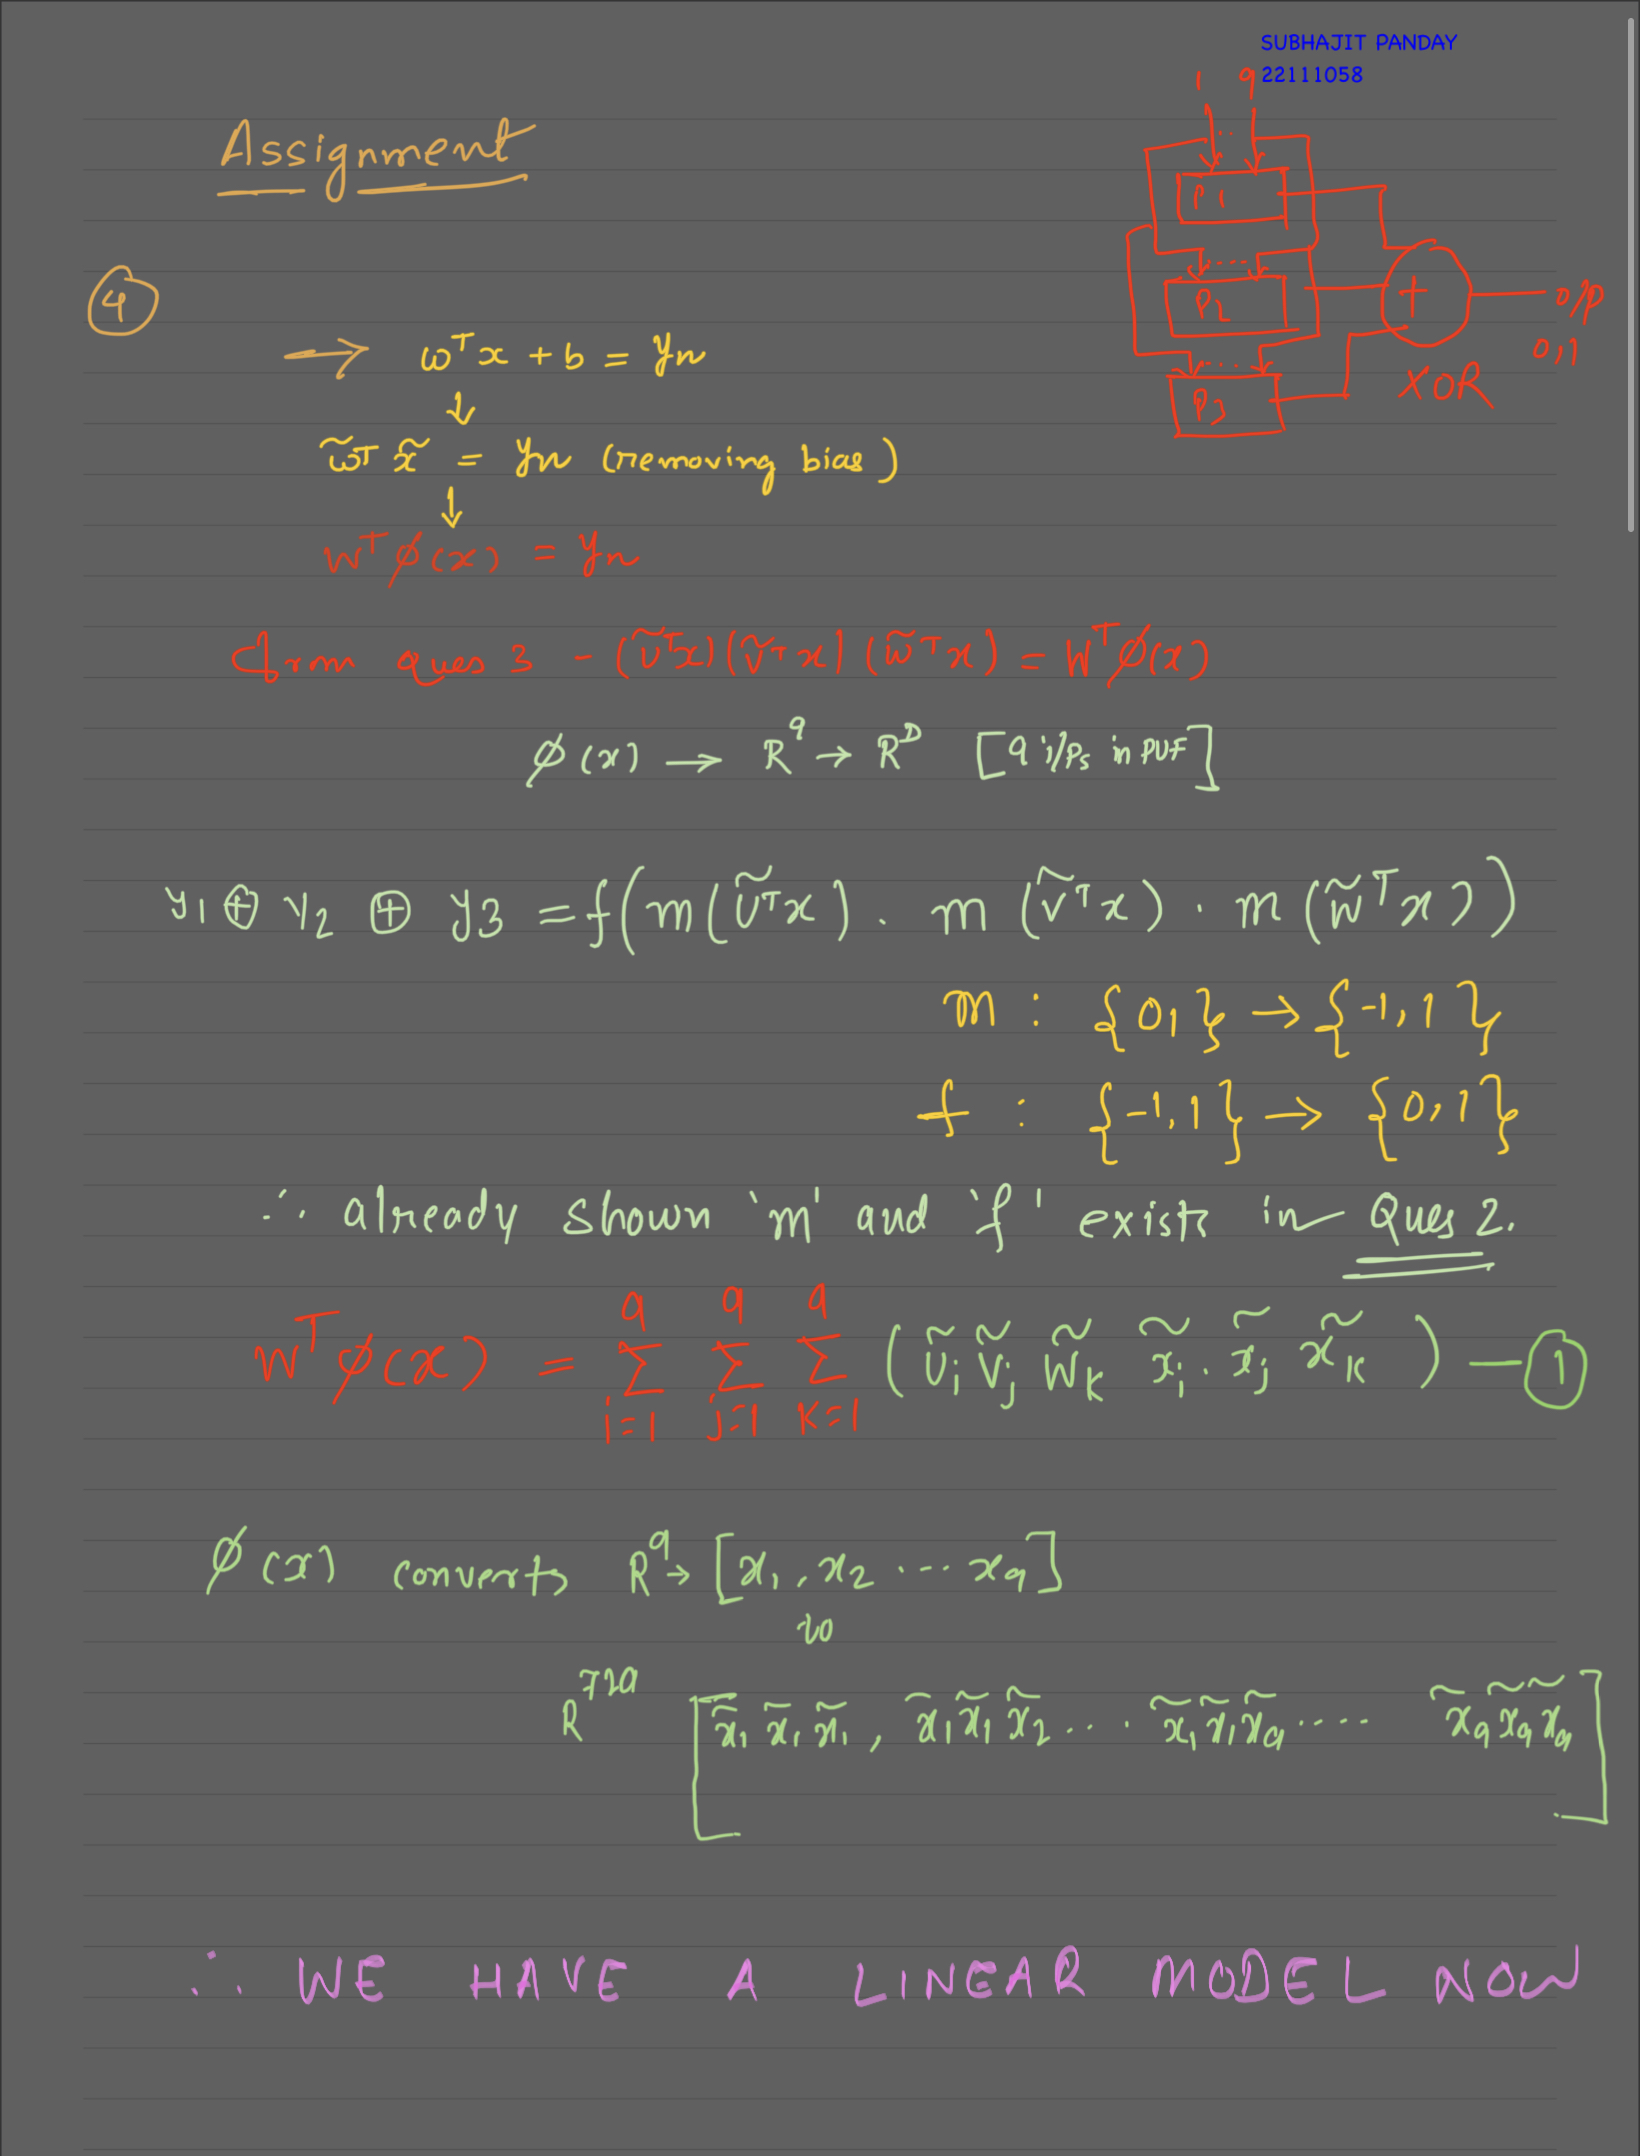 SUBHAJIT PANDAY
22111058
1 9
..
P1
....
P2
....
P3
+
XOR
o/p
0,1
Assignment
4
→ ω^T x + b = yn
↓
ω̃^T x̃ = yn (removing bias)
↓
W^T ø(x) = yn
from ques 3 - (ũ^T x) (ṽ^T x) (w̃^T x) = W^T ø(x)
ø(x) → R^9 → R^D [9 i/ps in PUF]
y1 ⊕ y2 ⊕ y3 = f(m(ũ^T x) . m(ṽ^T x) . m(w̃^T x))
m : {0,1} → {-1,1}
f : {-1,1} → {0,1}
∴ already shown 'm' and 'f' exists in Ques 2.
W^T ø(x) = Σ_{i=1}^{9} Σ_{j=1}^{9} Σ_{k=1}^{9} (ũi ṽj w̃k x̃i . x̃j x̃k) — 1
ø(x) converts R^9 → [x1, x2 ... x9]
to
R^729 [x̃1 x̃1 x̃1, x̃1 x̃1 x̃2 ... x̃1 x̃1 x̃9 .... x̃9 x̃9 x̃9]
∴ WE HAVE A LINEAR MODEL NOW